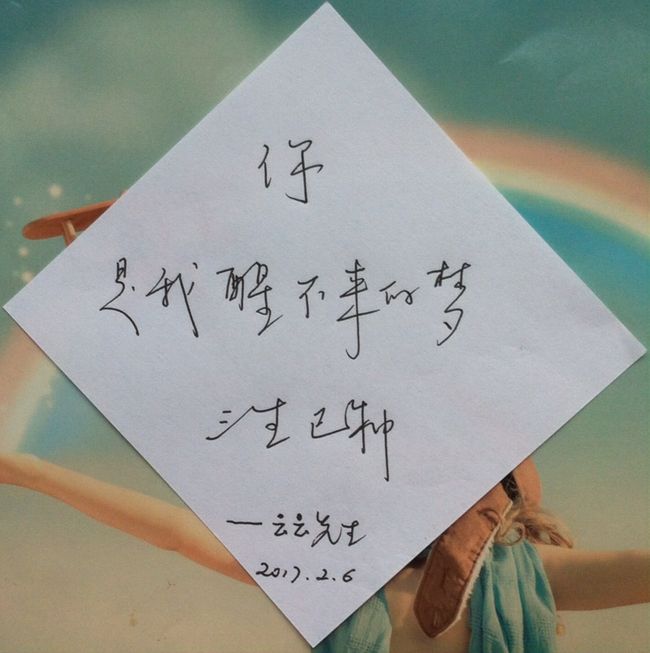 你
是我醒不来的梦
三生已
—云云先生
2017.2.6